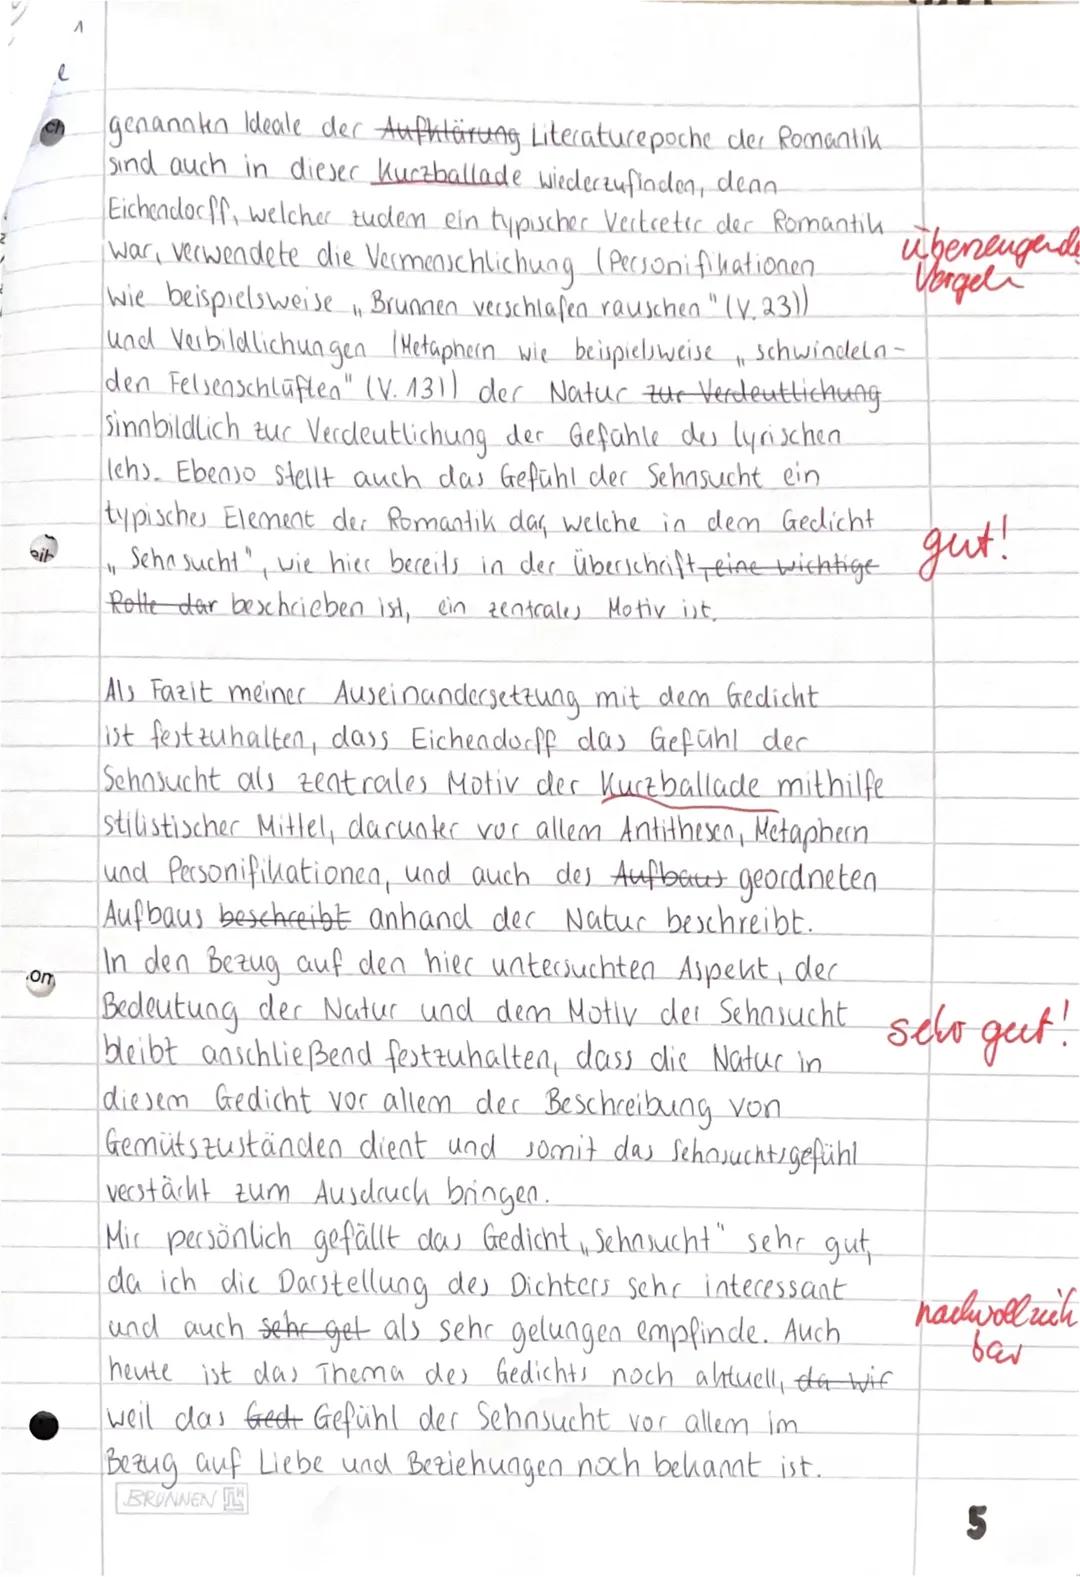 1
e
ch
genannten Ideale der Aufklärung Literaturepoche der Romantik
sind auch in dieser Kurzballade wiederzufinden, denn
Eichendorff, welcher zudem ein typischer Vertreter der Romantik
war, verwendete die Vermenschlichung (Personifikationen
überzeugende
Vorgeh
wie beispielsweise „Brunnen verschlafen rauschen" (V. 23))
und Verbildlichungen (Metaphern wie beispielsweise „schwindeln-
den Felsenschlüften" (V. 13)) der Natur zur Verdeutlichung
sinnbildlich zur Verdeutlichung der Gefühle des lyrischen
Ichs. Ebenso stellt auch das Gefühl der Sehnsucht ein
typisches Element der Romantik dar, welche in dem Gedicht
gut!
eit
„Sehnsucht", wie hier bereits in der Überschrift, eine wichtige
Rolle dar beschrieben ist, ein zentrales Motiv ist.
Als Fazit meiner Auseinandersetzung mit dem Gedicht
ist festzuhalten, dass Eichendorff das Gefühl der
Sehnsucht als zentrales Motiv der Kurzballade mithilfe
stilistischer Mittel, darunter vor allem Antithesen, Metaphern
und Personifikationen, und auch des Aufbaus geordneten
Aufbaus beschreibt anhand der Natur beschreibt.
on
In den Bezug auf den hier untersuchten Aspekt, der
Bedeutung der Natur und dem Motiv der Sehnsucht
sehr gut!
bleibt anschließend festzuhalten, dass die Natur in
diesem Gedicht vor allem der Beschreibung von
Gemütszuständen dient und somit das Sehnsuchtsgefühl
verstärkt zum Ausdruck bringen.
Mir persönlich gefällt das Gedicht „Sehnsucht" sehr gut,
da ich die Darstellung des Dichters sehr interessant
und auch sehr get als sehr gelungen empfinde. Auch
nachvollzieh
bar
heute ist das Thema des Gedichts noch aktuell, da wir
weil das Ged Gefühl der Sehnsucht vor allem im
Bezug auf Liebe und Beziehungen noch bekannt ist.
BRUNNEN
5